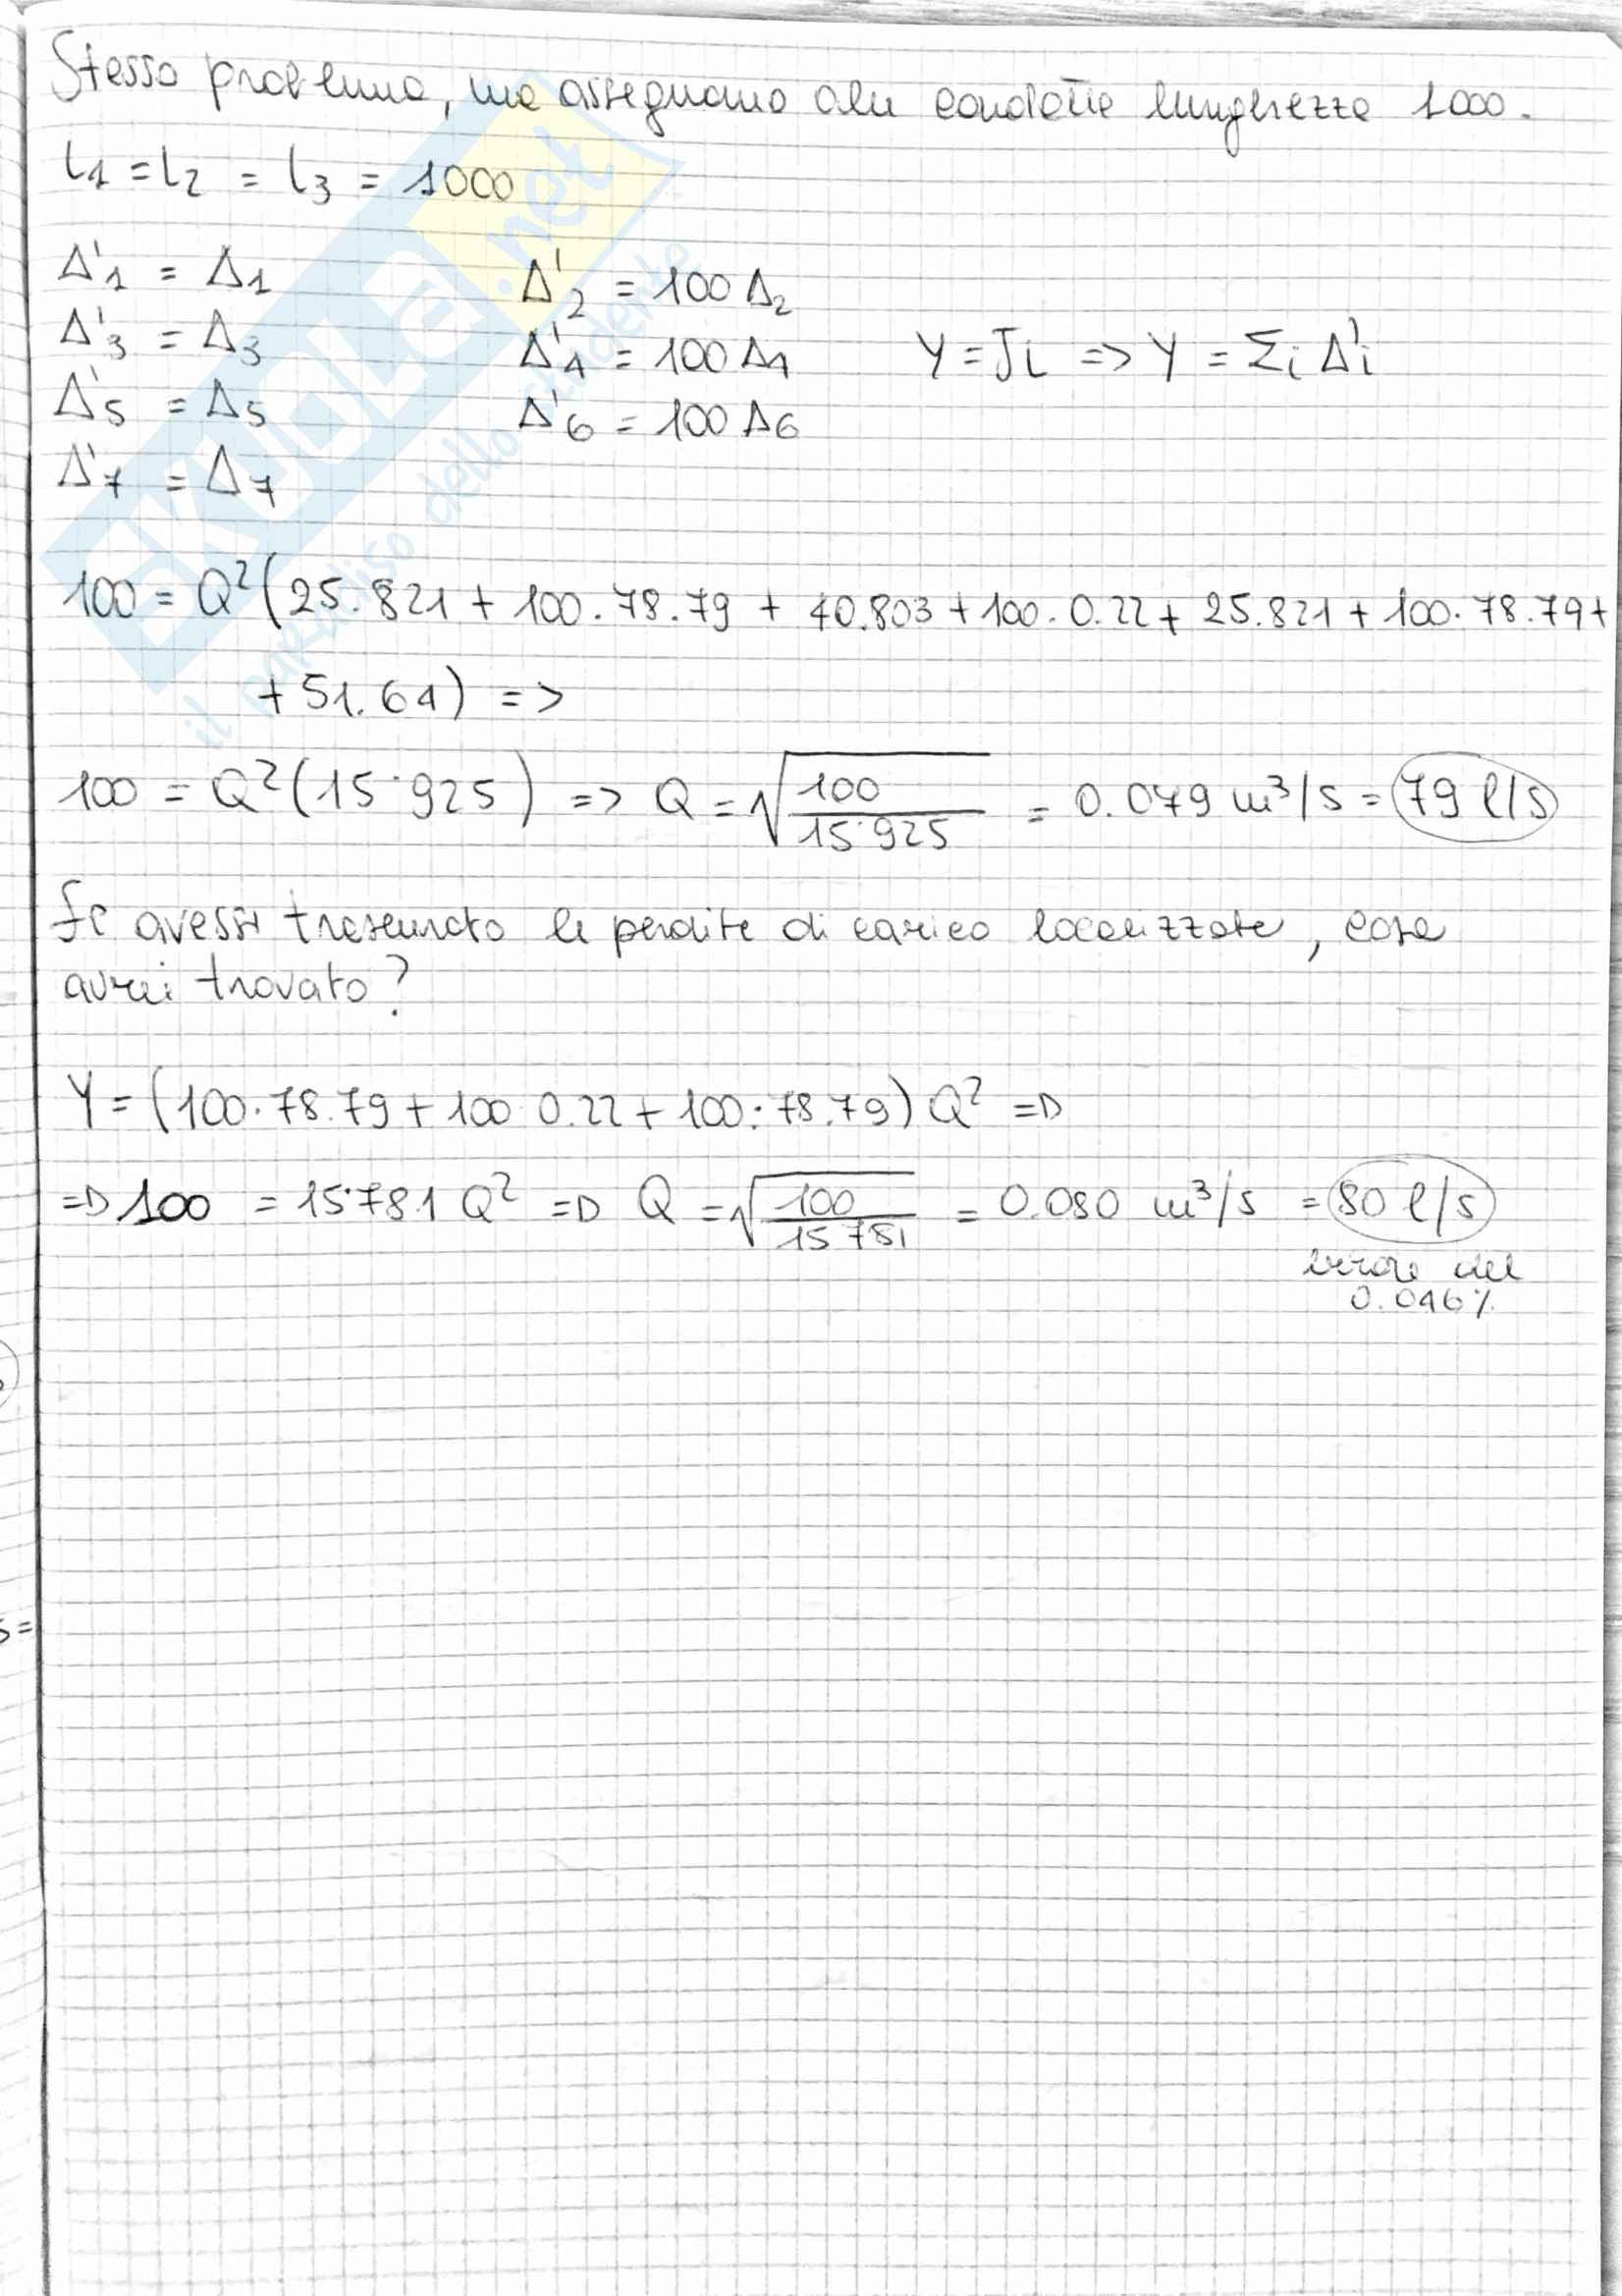 Stesso problema, ma assegnamo alle condotte lunghezza 1000.
L1 = L2 = L3 = 1000
Δ'1 = Δ1 Δ'2 = 100 Δ2
Δ'3 = Δ3 Δ'4 = 100 Δ4 Y = JL => Y = Σi Δ'i
Δ'5 = Δ5 Δ'6 = 100 Δ6
Δ'7 = Δ7
100 = Q²(25.821 + 100 · 78.79 + 40.803 + 100 · 0.22 + 25.821 + 100 · 78.79 +
+ 51.64) =>
100 = Q²(15'925) => Q = √(100/15'925) = 0.079 m³/s = 79 l/s
Se avessi trascurato le perdite di carico localizzate, cosa
avrei trovato?
Y = (100 · 78.79 + 100 0.22 + 100 · 78.79) Q² =>
=> 100 = 15'781 Q² => Q = √(100/15 781) = 0.080 m³/s = 80 l/s
errore del
0.046%
s =
SKUOLA.net
il paradiso dello studente